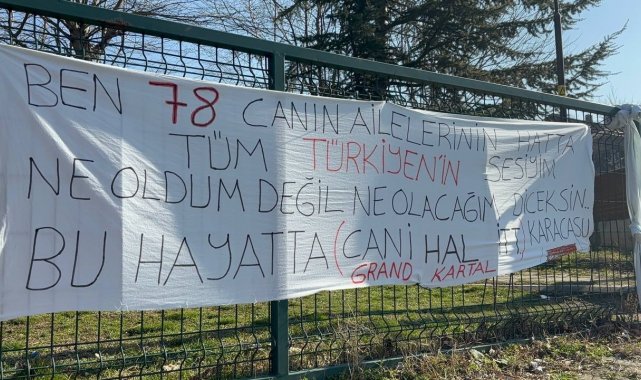 BEN 78 CANIN AİLELERİNİN HATTA
TÜM TÜRKİYEN'İN SESİYİM
NE OLDUM DEĞİL NE OLACAĞIM DİCEKSİN.
BU HAYATTA (CANİ HAL İT) KARACASU
GRAND KARTAL